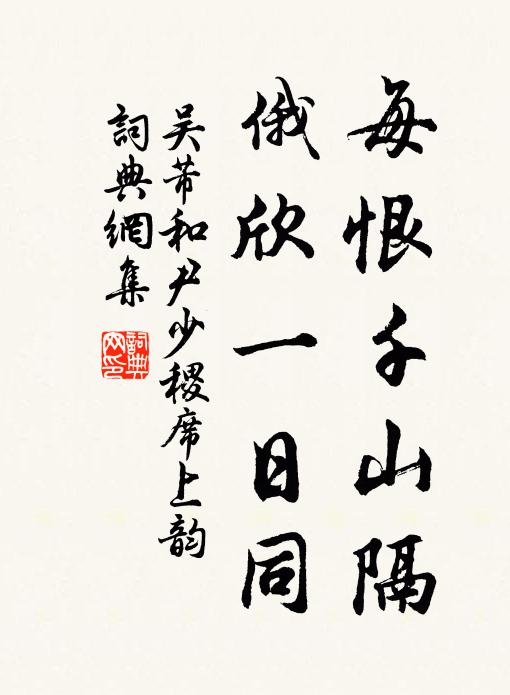 每恨千山隔
俄欣一日同
吴芾和尹少稷席上韵
詞典網集
詞典網印